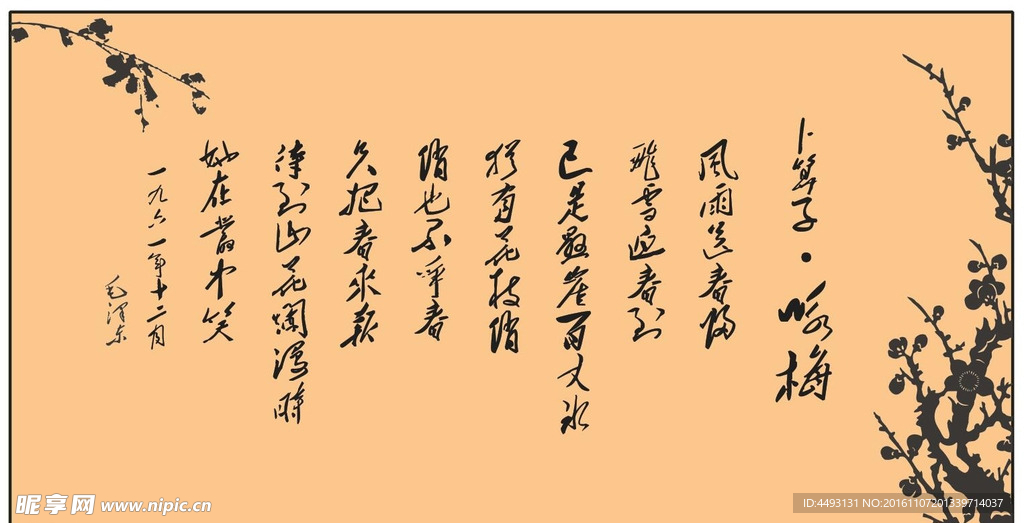 卜算子·咏梅
風雨送春歸
飛雪迎春到
已是懸崖百丈冰
猶有花枝俏
俏也不爭春
只把春來報
待到山花爛漫時
她在叢中笑
一九六一年十二月
毛澤东
昵享网 www.nipic.cn
ID:4493131 NO:20161107201339714037